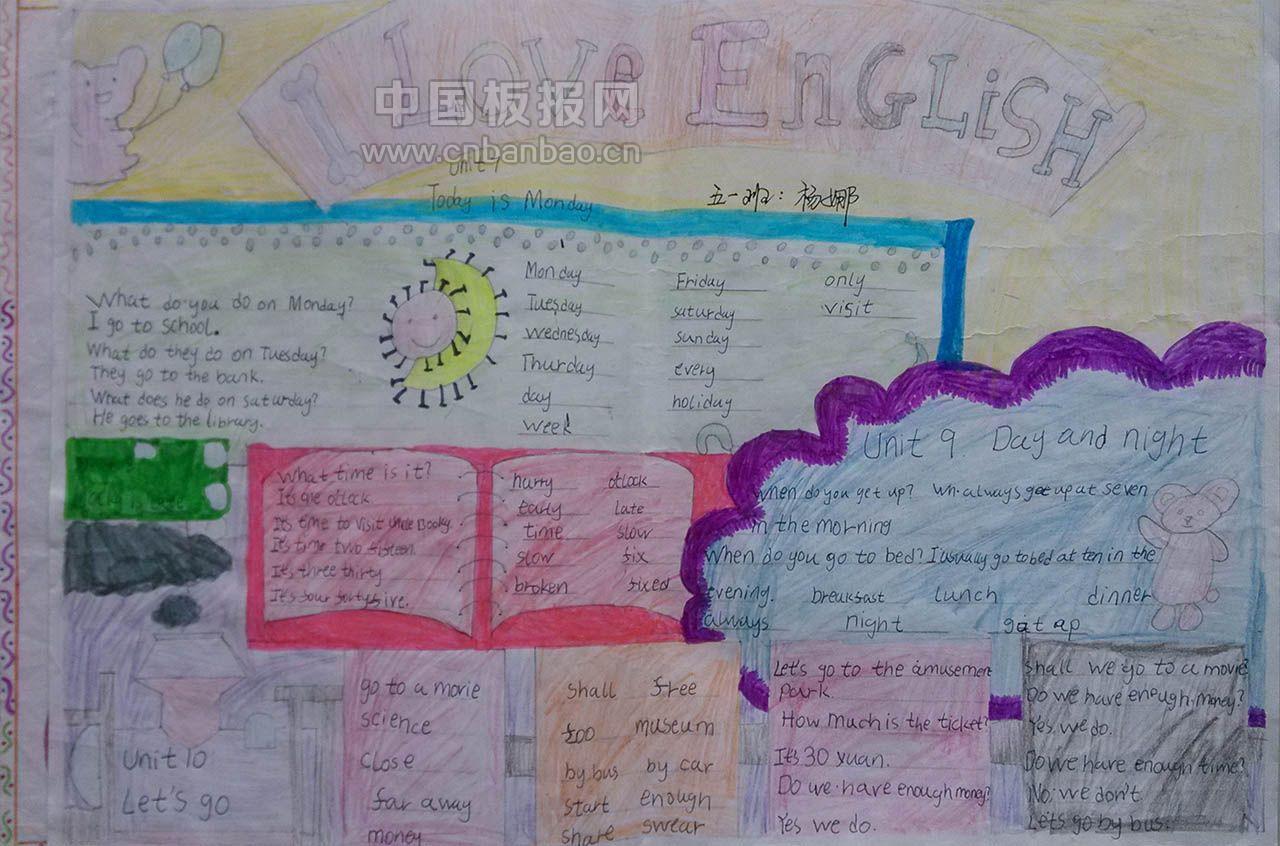 I LOVE EnGLiSH
中国板报网
www.cnbanbao.cn
Unit 7
Today is Monday
五一班：杨娜
What do you do on Monday?
I go to school.
What do they do on Tuesday?
They go to the bank.
What does he do on saturday?
He goes to the library.
Monday
Tuesday
Wednesday
Thurday
day
week
Friday
saturday
sunday
every
holiday
only
visit
What time is it?
It's one oclock.
It's time to visit Uncle Booky.
It's time two fisteen.
It's three thirty
It's four fortyfive.
hurry oclock
early late
time slow
slow fix
broken fixed
Unit 9. Day and night
When do you get up? always get up at seven
in the morning
When do you go to bed? I usually go to bed at ten in the
evening. breakfast lunch dinner
always night get up
Unit 10
Let's go
go to a movie
science
close
far away
money
shall free
too museum
by bus by car
start enough
share swear
Let's go to the amusement
park.
How much is the ticket?
It's 30 yuan.
Do we have enough money?
Yes we do.
shall we go to a movie
Do we have enough money?
Yes we do.
Do we have enough time?
No, we don't.
Let's go by bus.